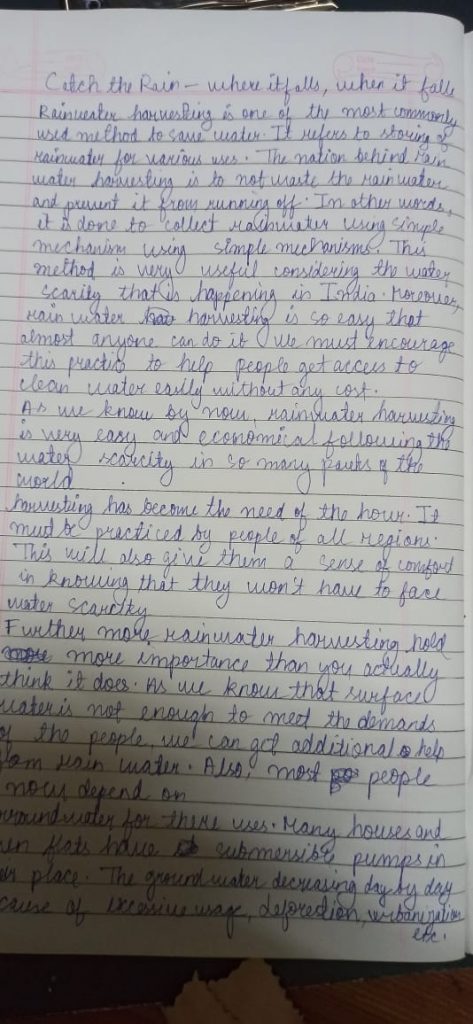 Catch the Rain – where it falls, when it falls
Rainwater harvesting is one of the most commonly
used method to save water. It refers to storing of
rainwater for various uses. The nation behind rain
water harvesting is to not waste the rainwater
and prevent it from running off. In other words,
it is done to collect rainwater using simple
mechanism using simple mechanisms. This
method is very useful considering the water
scarity that is happening in India. Moreover,
rain water harvesting is so easy that
almost anyone can do it we must encourage
this practic to help people get access to
clean water easily without any cost.
As we know by now, rainwater harvesting
is very easy and economical following the
water scarcity in so many parts of the
world
harvesting has become the need of the hour. It
must be practiced by people of all regions.
This will also give them a sense of comfort
in knowing that they won't have to face
water scarcity
Further more, rainwater harvesting hold
more importance than you actually
think it does. As we know that surface
water is not enough to meet the demands
of the people, we can get additional help
from rain water. Also, most people
now depend on
groundwater for there uses. Many houses and
en flats have submersible pumps in
place. The ground water decreasing day by day
cause of excessive usage, deforestion, urbanization
etc.